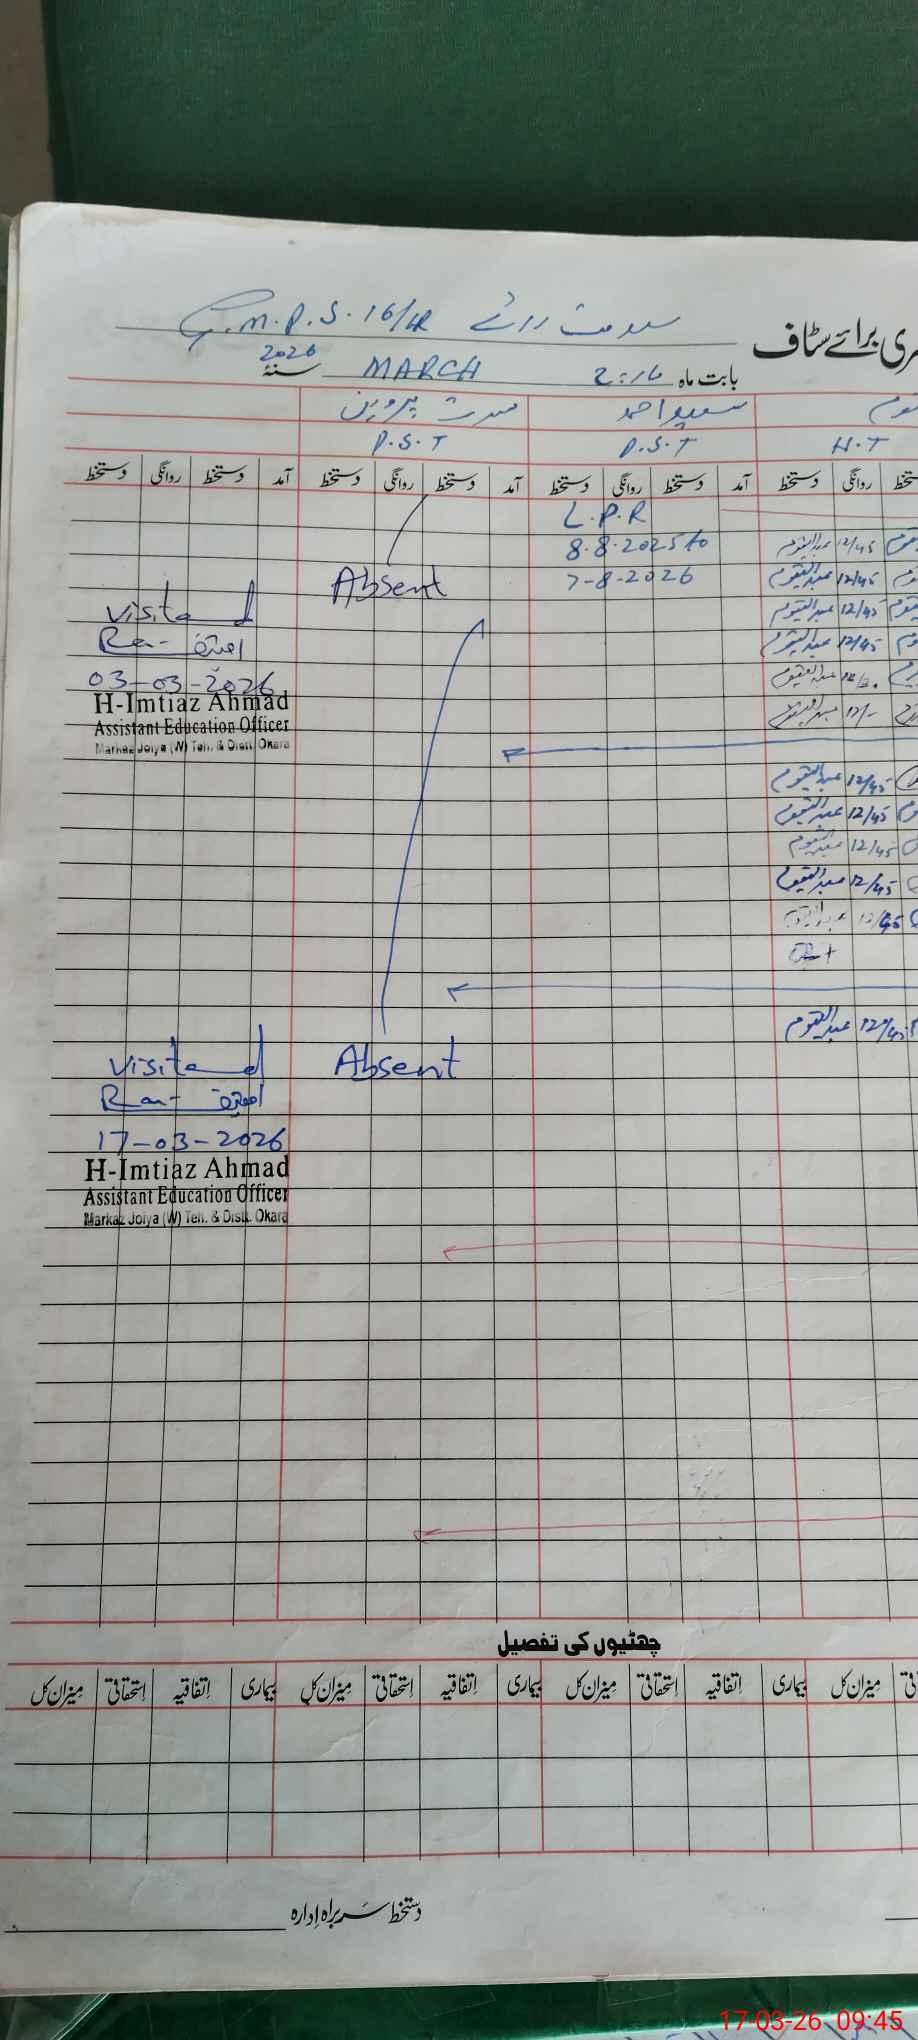 G.M.P.S. 16/4R
ری برائے سٹاف
بابت ماہ مارچ MARCH سنۂ 2026
سعید احمد
P.S.T
P.S.T
H.T
آمد دستخط روانگی دستخط آمد دستخط روانگی دستخط آمد دستخط روانگی دستخط
L.P.R
8.8.2025 to
7-8-2026
عبدالقیوم 12/45
عبدالقیوم 12/45
عبدالقیوم 12/45
عبدالقیوم 12/45
Absent
Visited
03-03-2026
H-Imtiaz Ahmad
Assistant Education Officer
Markaz Joiya (W) Teh. & Distt. Okara
عبدالقیوم 12/45
عبدالقیوم 12/45
عبدالقیوم 12/45
عبدالقیوم 12/45
عبدالقیوم 12/45
عبدالقیوم 12/45
Absent
Visited
17-03-2026
H-Imtiaz Ahmad
Assistant Education Officer
Markaz Joiya (W) Teh. & Distt. Okara
چھٹیوں کی تفصیل
میزان کل بیماری اتفاقیہ استحقاقی میزان کل بیماری اتفاقیہ استحقاقی میزان کل بیماری اتفاقیہ استحقاقی میزان کل
دستخط سربراہ ادارہ
17-03-26 09:45